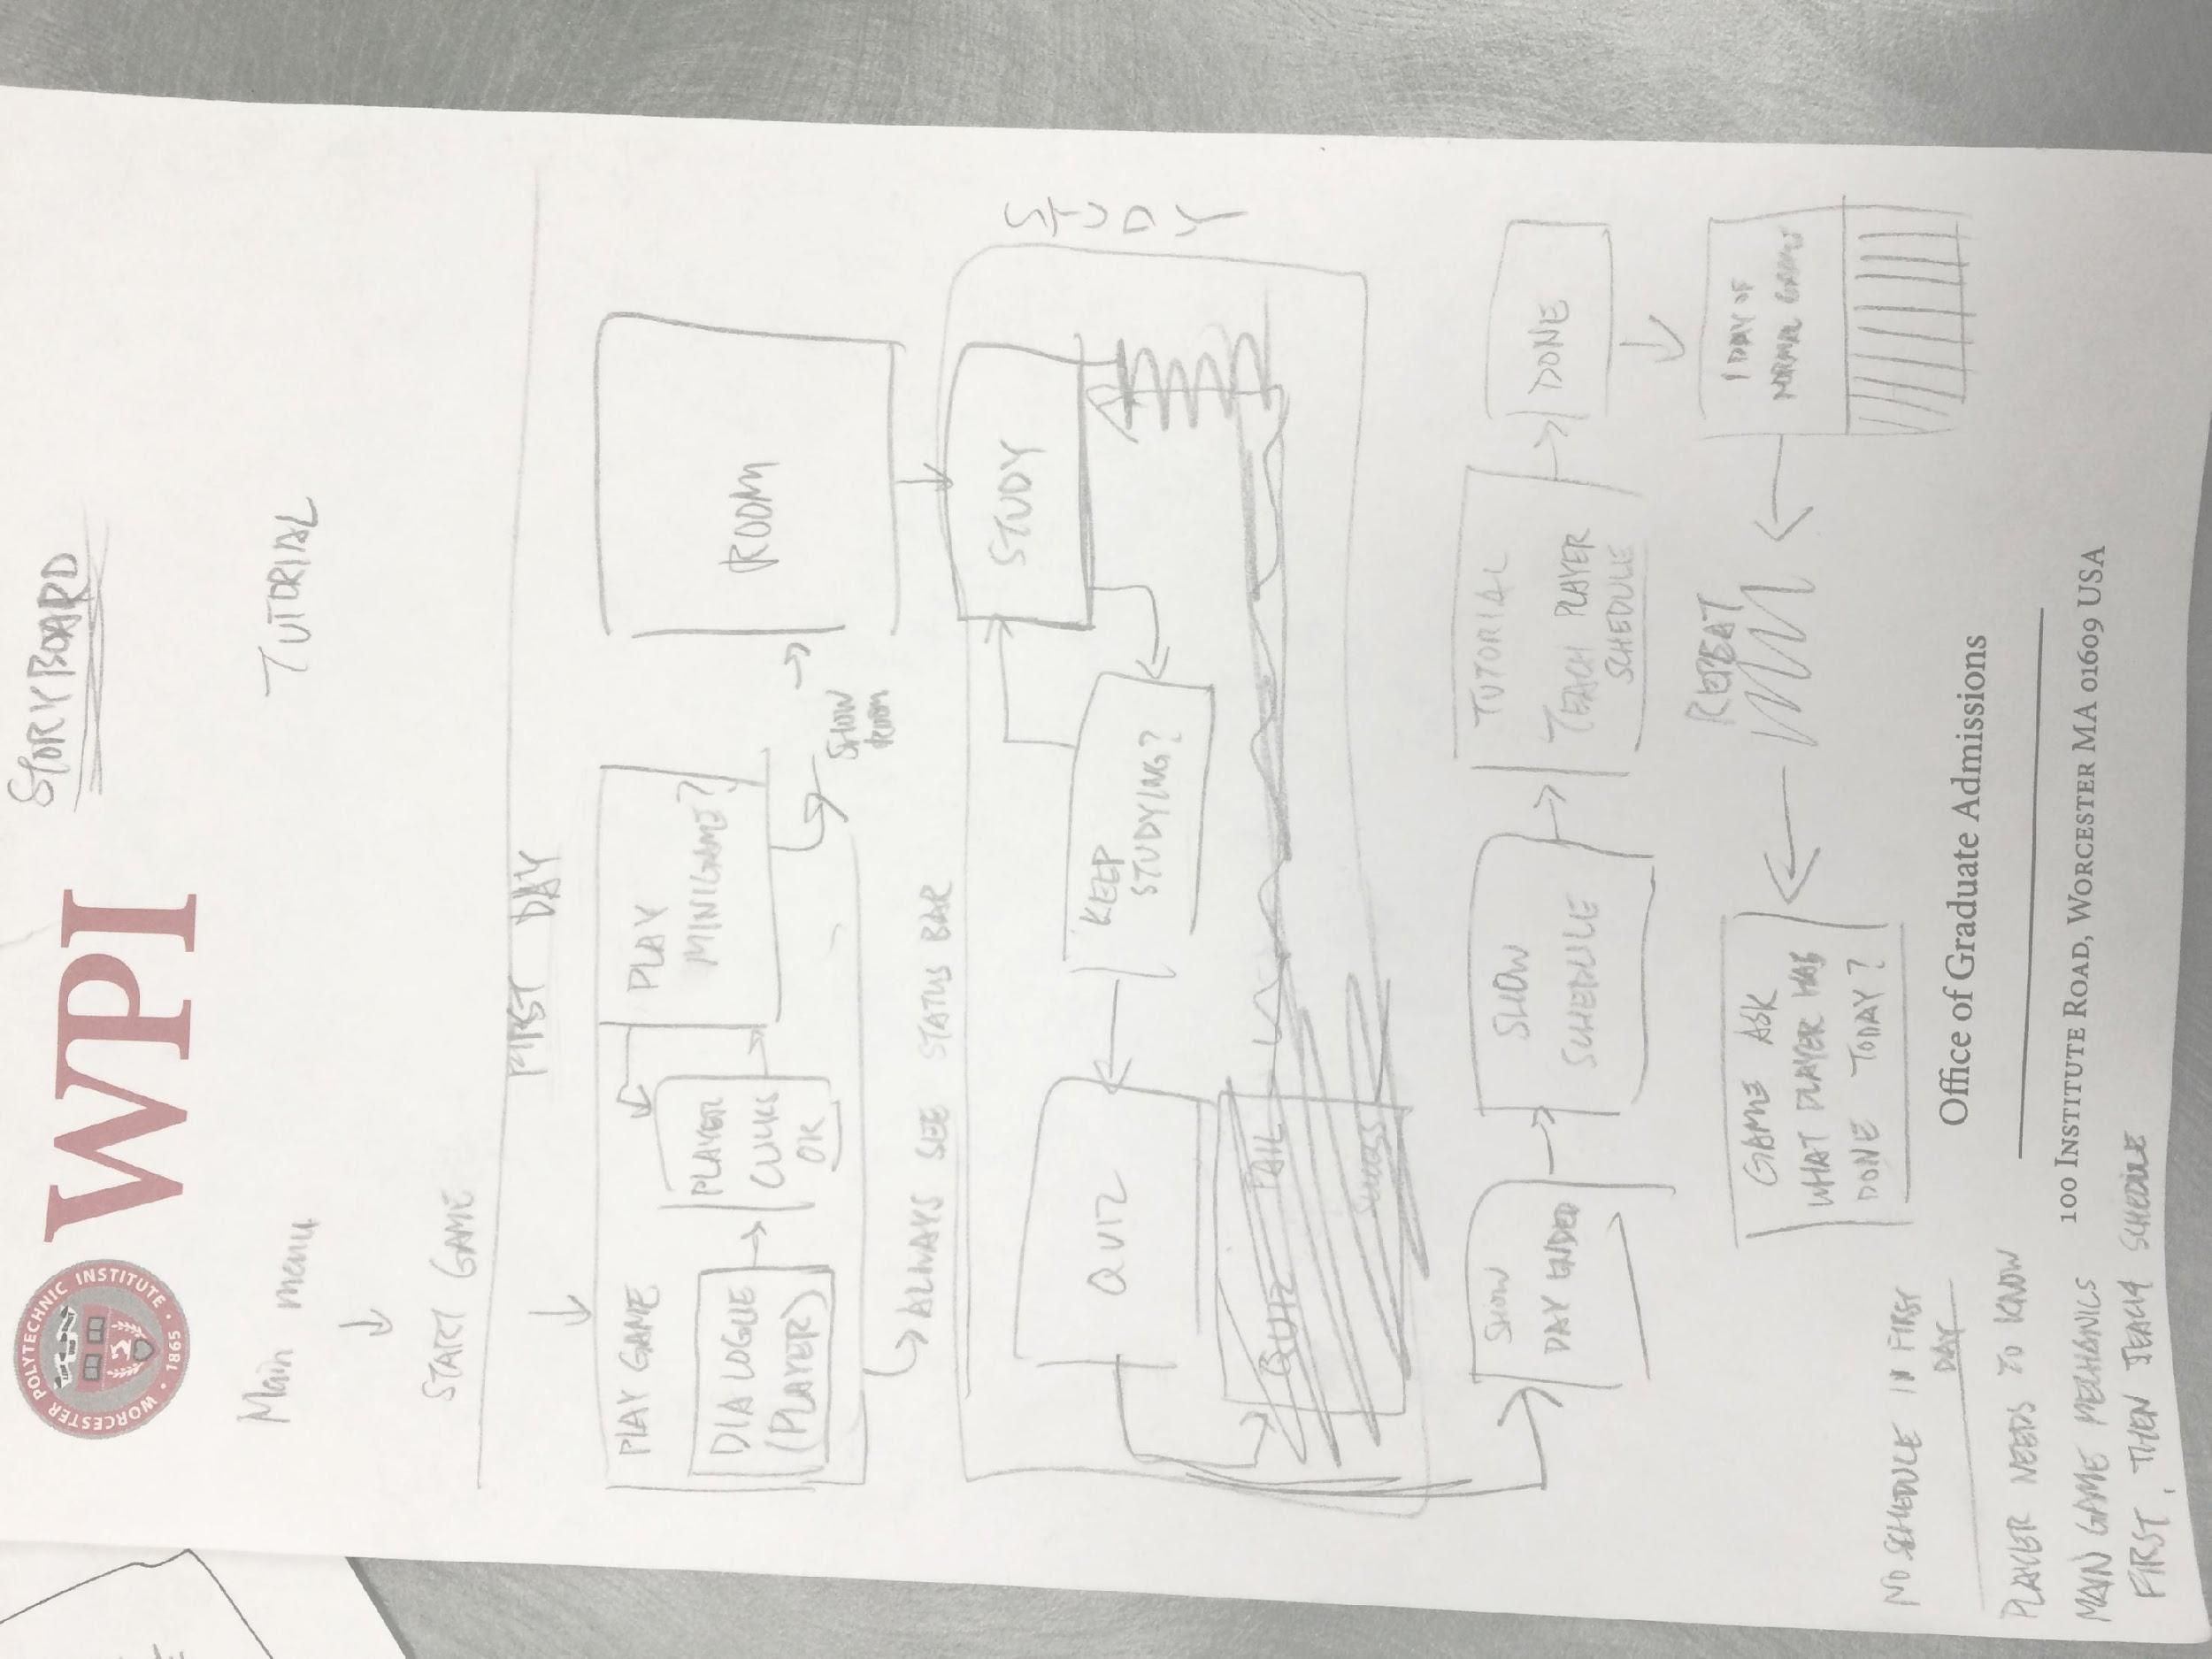 STORYBOARD
WORCESTER POLYTECHNIC INSTITUTE · 1865
WPI
Main menu
TUTORIAL
START GAME
FIRST DAY
PLAY GAME
DIALOGUE
(PLAYER)
PLAYER
CLICKS
OK
PLAY
MINIGAME?
SHOW
ROOM
ROOM
ALWAYS SEE STATUS BAR
STUDY
QUIZ
KEEP
STUDYING?
STUDY
FAIL
QUIZ
SUCCESS
SHOW
DAY ENDED
SHOW
SCHEDULE
TUTORIAL
TEACH PLAYER
SCHEDULE
DONE
GAME ASK
WHAT PLAYER HAS
DONE TODAY?
REPEAT
1 DAY OF
NORMAL GAME
NO SCHEDULE IN FIRST
DAY
PLAYER NEEDS TO KNOW
MAIN GAME MECHANICS
FIRST, THEN TEACH SCHEDULE
Office of Graduate Admissions
100 INSTITUTE ROAD, WORCESTER MA 01609 USA